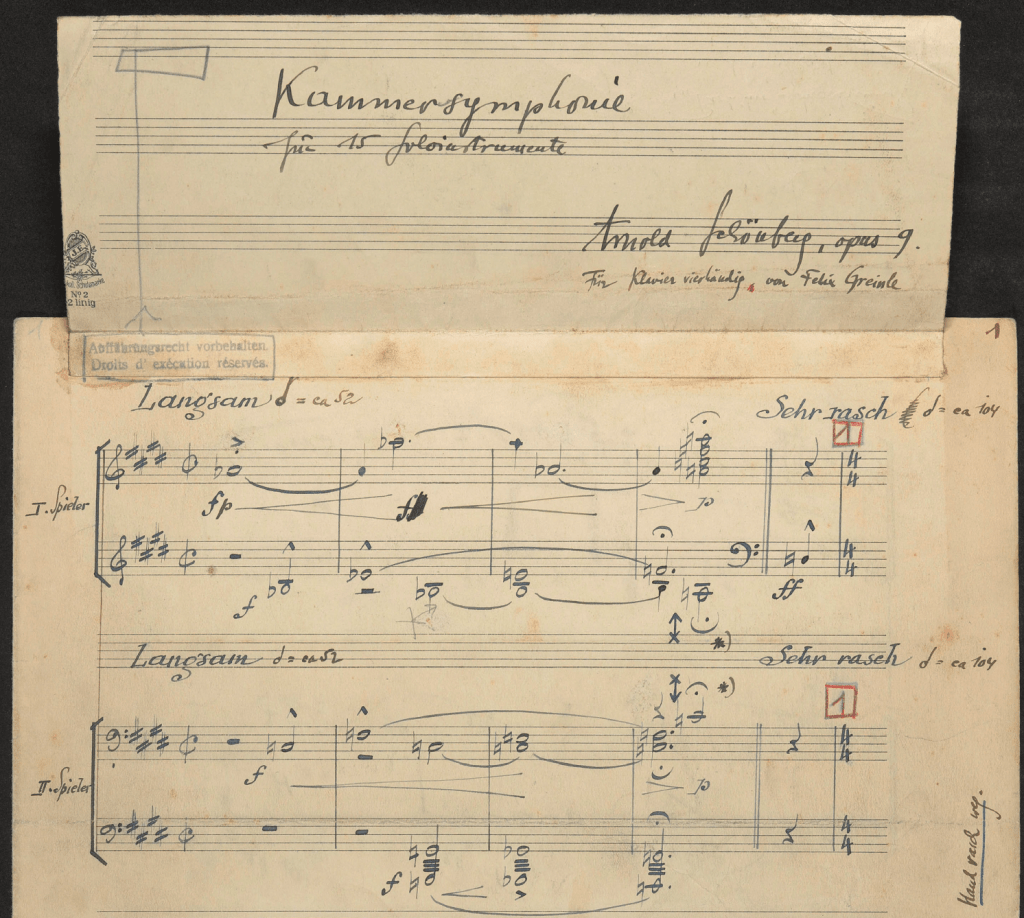 Kammersymphonie
für 15 Soloinstrumente
Arnold Schönberg, opus 9.
Für Klavier vierhändig, von Felix Greissle
J.E.
No 2
12 linig
Aufführungsrecht vorbehalten.
Droits d' exécution réservés.
1
Langsam = ca 52
Sehr rasch = ca 104
1
I. Spieler
fp
ff
p
f
ff
4 4
4 4
*)
Langsam = ca 52
Sehr rasch = ca 104
*)
1
II. Spieler
f
p
4 4
f
4 4